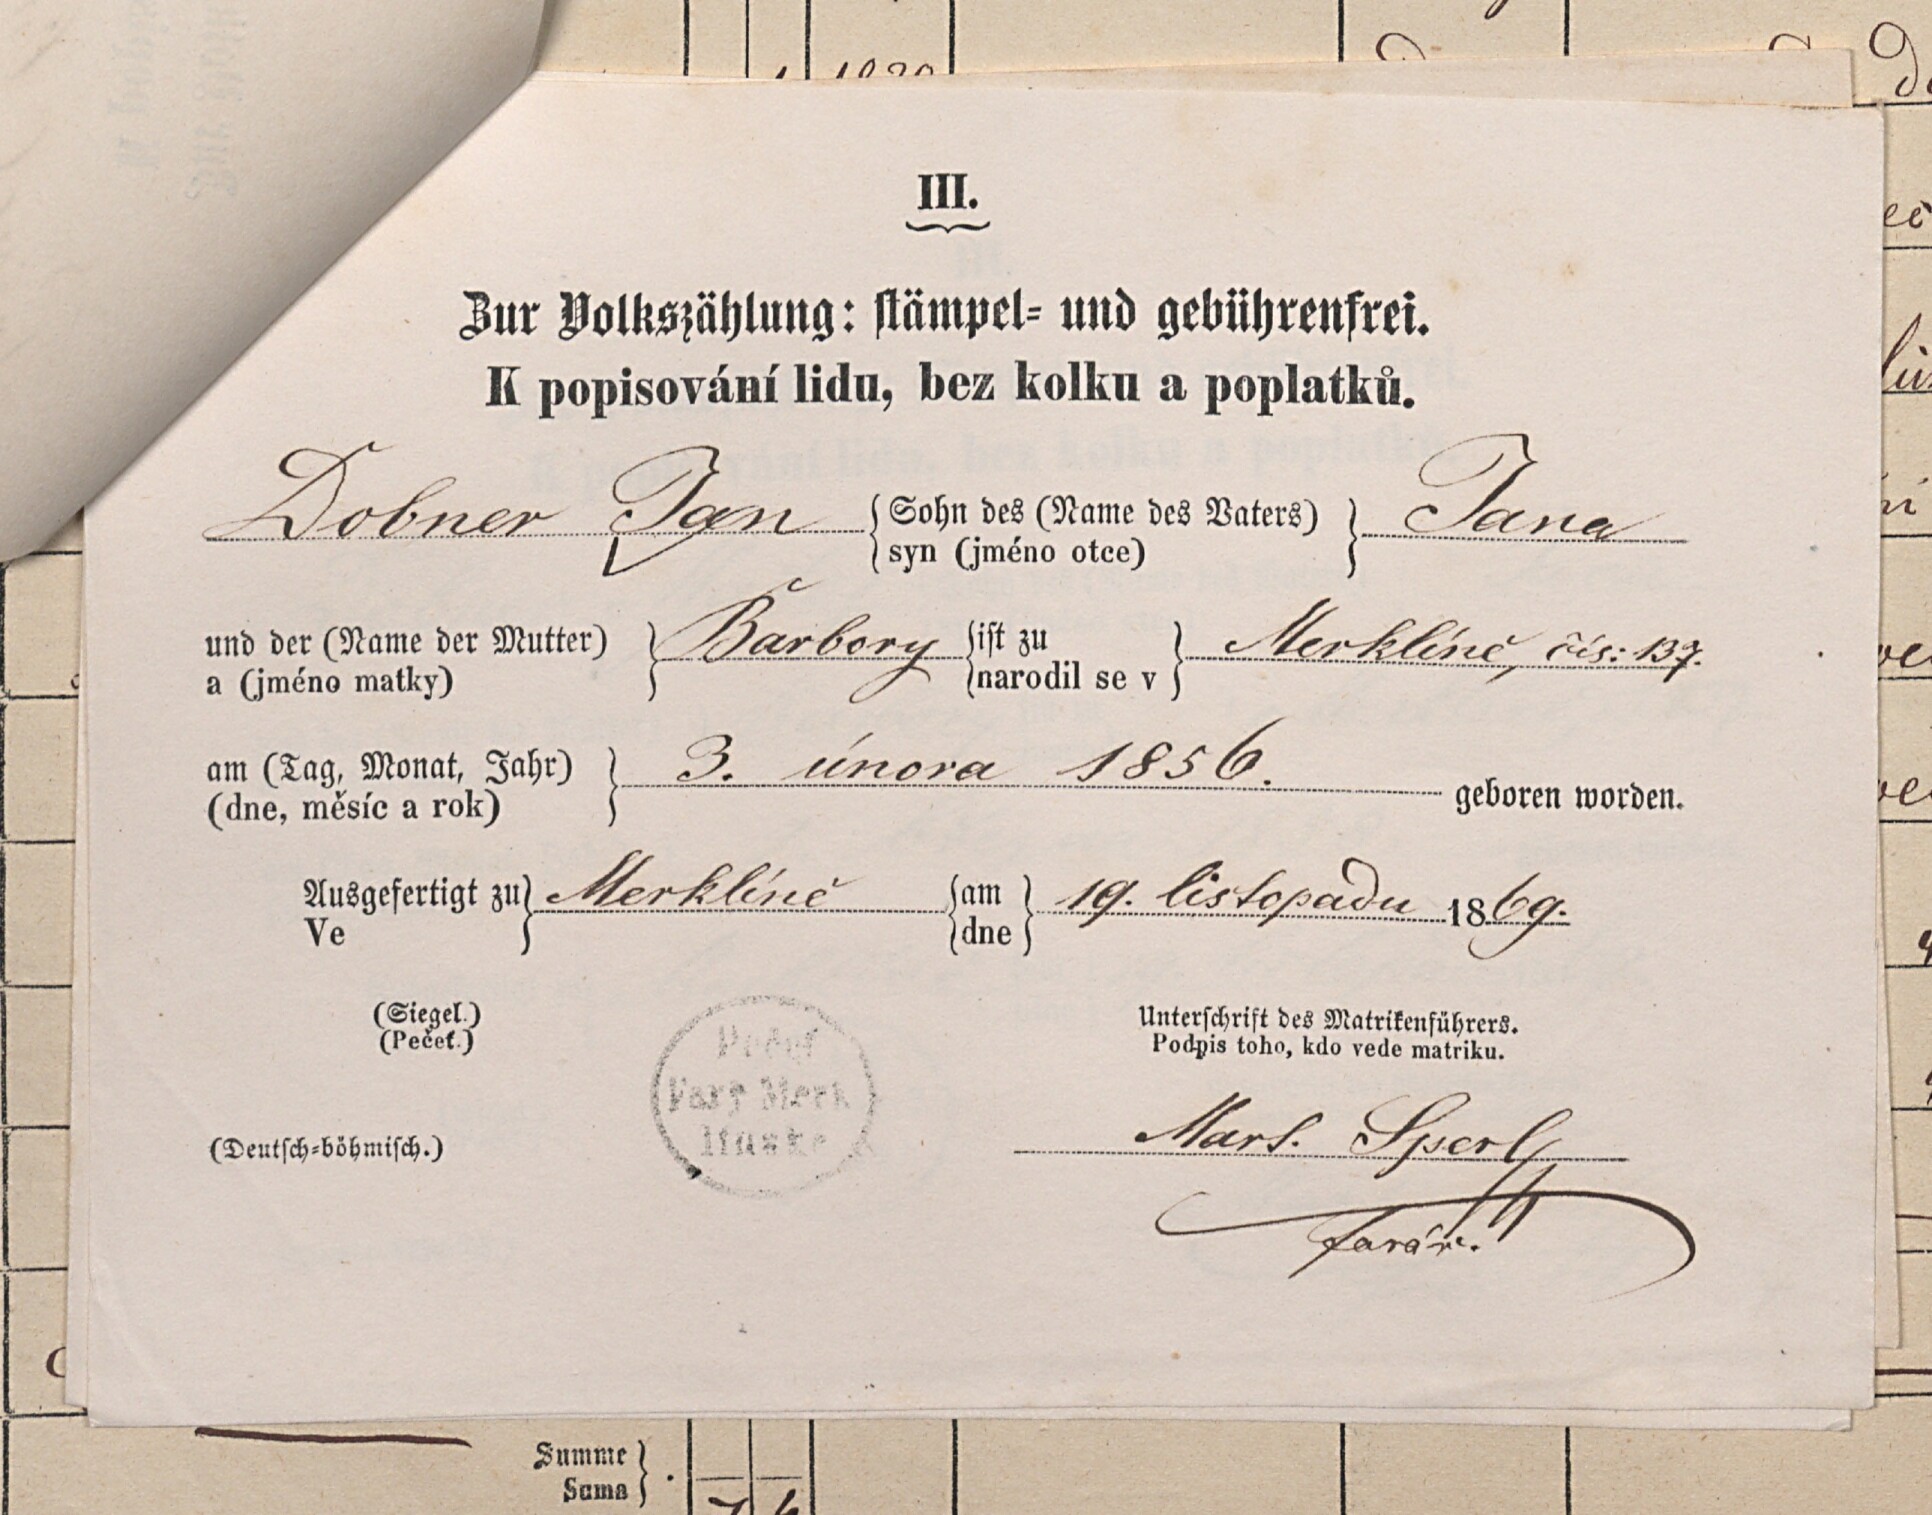 III.
Zur Volkszählung: stämpel= und gebührenfrei.
K popisování lidu, bez kolku a poplatků.
Dobner Jan { Sohn des (Name des Vaters) } Jana
syn (jméno otce)
und der (Name der Mutter) } Barbory { ist zu } Merklíně, čís: 137.
a (jméno matky) narodil se v
am (Tag, Monat, Jahr) } 3. února 1856. geboren worden.
(dne, měsíc a rok)
Ausgefertigt zu } Merklíně { am } 19. listopadu 1869.
Ve dne
(Siegel.)
(Pečeť.)
Pečeť
Fary Merk
línské
Unterschrift des Matrikenführers.
Podpis toho, kdo vede matriku.
(Deutsch=böhmisch.)
Mart. Sperl
farář.
Summe
Suma